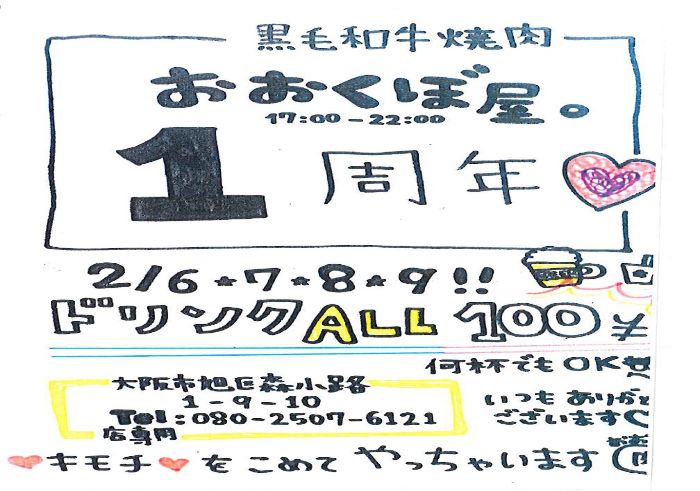 黒毛和牛焼肉
おおくぼ屋。
17:00-22:00
1周年
2/6★7★8★9!!
ドリンクALL100¥
何杯でもOK
大阪市旭区森小路
1-9-10
Tel:080-2507-6121
店専用
いつもありがと
ございます
キモチをこめてやっちゃいます